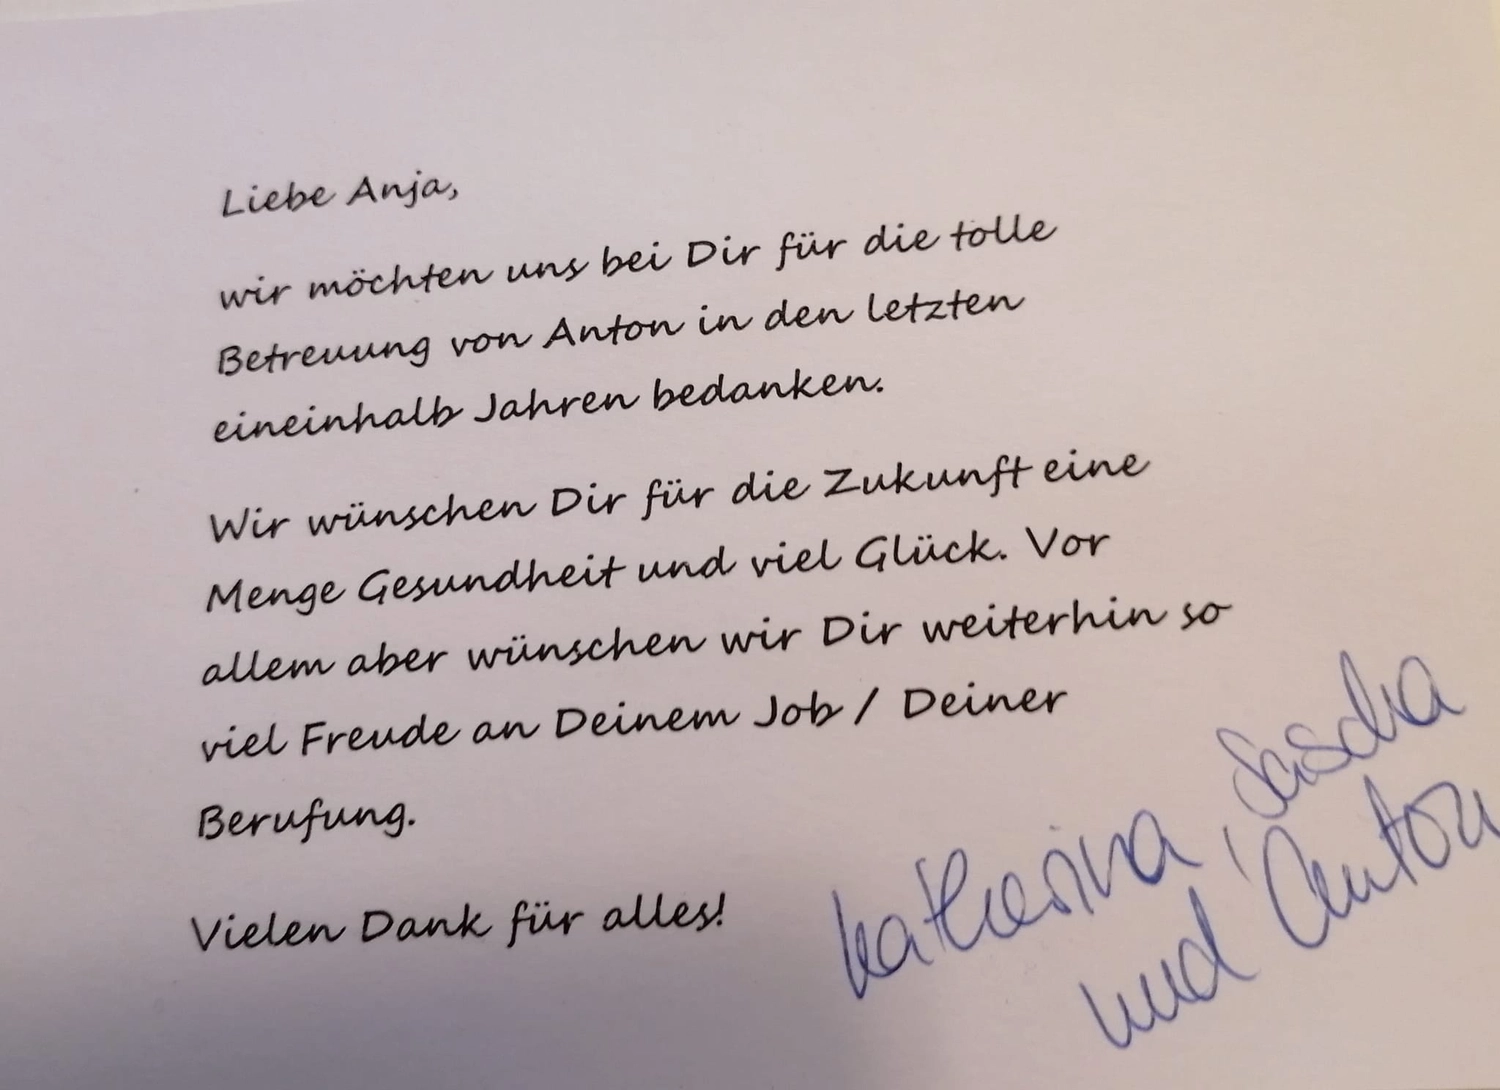 Liebe Anja,
wir möchten uns bei Dir für die tolle
Betreuung von Anton in den letzten
eineinhalb Jahren bedanken.
Wir wünschen Dir für die Zukunft eine
Menge Gesundheit und viel Glück. Vor
allem aber wünschen wir Dir weiterhin so
viel Freude an Deinem Job / Deiner
Berufung.
Vielen Dank für alles!
Katharina, Sascha
und Anton